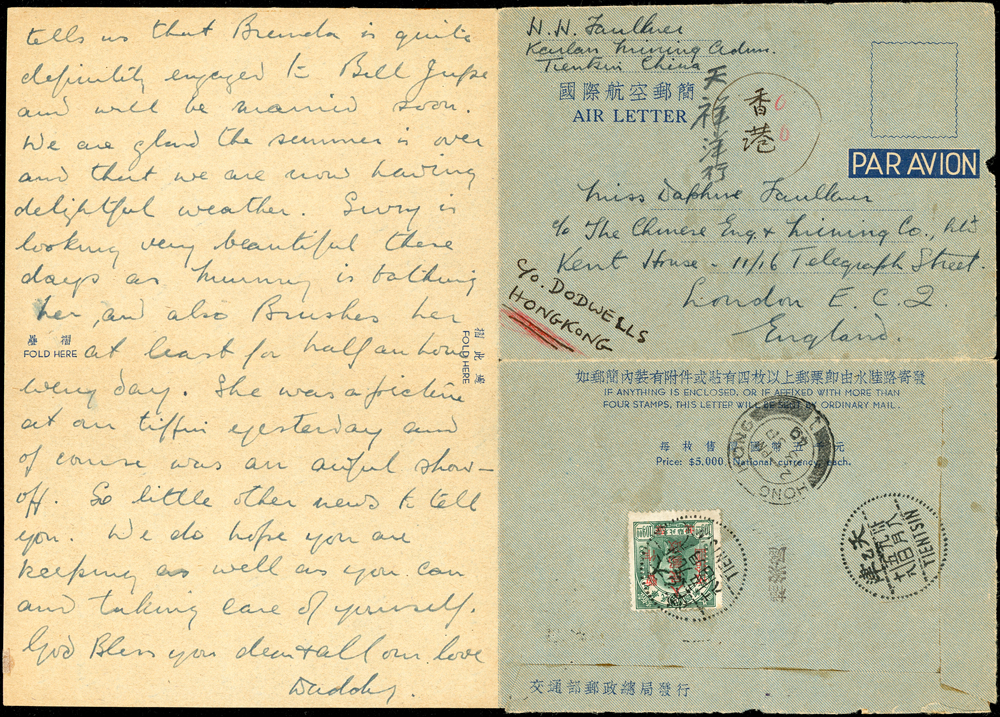 tells us that Brenda is quite
definitely engaged to Bill Jupe
and will be married soon.
We are glad the summer is over
and that we are now having
delightful weather. is
looking very beautiful these
days as Mummy is bathing
her, and also Brushes her
at least for half an hour
every day. She was a picture
at an tiffin yesterday and
of course was an awful show-
off. So little other news to tell
you. We do hope you are
keeping as well as you can
and taking care of yourself.
God Bless you dear & all our love
Daddy.
摺此處
FOLD HERE
摺此處
FOLD HERE
H. H. Faulkner
Kailan Mining Adm.
Tientsin China
天祥洋行
香港
6
6
國際航空郵簡
AIR LETTER
PAR AVION
Miss Daphne Faulkner
c/o The Chinese Eng. & Mining Co., Ltd
Kent House - 11/16 Telegraph Street.
London E. C. 2.
England.
c/o. DODWELLS
HONGKONG
如郵簡內裝有附件或貼有四枚以上郵票即由水陸路寄發
IF ANYTHING IS ENCLOSED, OR IF AFFIXED WITH MORE THAN
FOUR STAMPS, THIS LETTER WILL BE SENT BY ORDINARY MAIL.
每枚售國幣五千元
Price: $5,000 National currency each.
HONG KONG
49
天津
TIENTSIN
TIENTSIN
交通部郵政總局發行